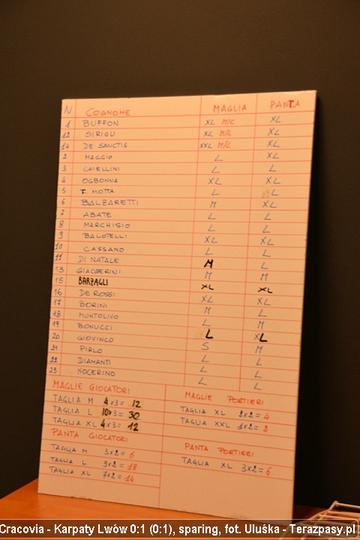 N COGNOME MAGLIA PANTA
1 BUFFON XL M/C XL
12 SIRIGU XL M/C XL
14 DE SANCTIS XXL M/C XL
2 MAGGIO L XL
3 CHIELLINI L L
4 OGBONNA XL XL
5 T. MOTTA L L
6 BALZARETTI M XL
7 ABATE L L
8 MARCHISIO L L
9 BALOTELLI XL XL
10 CASSANO L L
11 DI NATALE M L
13 GIACCHERINI M M
15 BARZAGLI XL XL
16 DE ROSSI XL XL
17 BORINI M L
18 MONTOLIVO L L
19 BONUCCI L L
20 GIOVINCO S M
21 PIRLO L L
22 DIAMANTI L L
23 NOCERINO L L
MAGLIE GIOCATORI MAGLIE PORTIERI
TAGLIA M 4x3= 12
TAGLIA L 10x3= 30 TAGLIA XL 2x2= 4
TAGLIA XL 4x3= 12 TAGLIA XXL 1x2= 2
PANTA GIOCATORI PANTA PORTIERI
TAGLIA M 3x2= 6
TAGLIA L 9x2= 18 TAGLIA XL 3x2= 6
TAGLIA XL 7x2= 14
Cracovia - Karpaty Lwów 0:1 (0:1), sparing, fot. Uluśka - Terazpasy.pl